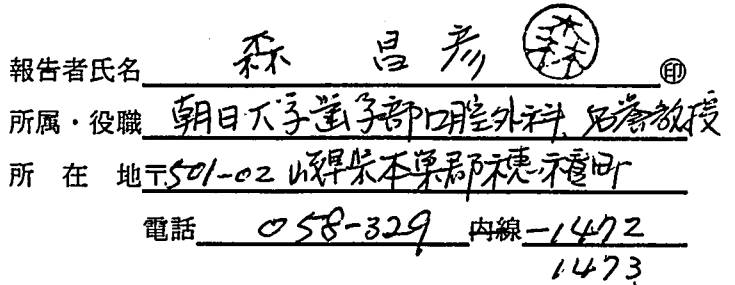 報告者氏名 森 昌彦 森 ㊞
所属・役職 朝日大学歯学部口腔外科、名誉教授
所在地〒501-02 岐阜県本巣郡穂積町
電話 058-329 内線-1472
1473